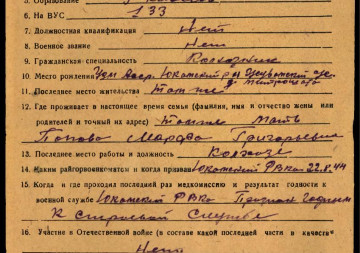 5. Образование
6. На ВУС 133
7. Должностная квалификация Нет
8. Военное звание Нет
9. Гражданская специальность Колхозник
10. Место рождения Удм Асср. Юкаменский р-н
11. Последнее место жительства Там же
12. Где проживает в настоящее время семья (фамилия, имя и отчество жены или
родителей и точный их адрес) Там же Мать
Попова Марфа Григорьевна
13. Последнее место работы и должность Колхозе
14. Каким райгорвоенкоматом и когда призван Юкаменский РВКа 22.8.44
15. Когда и где проходил последний раз медкомиссию и результат годности к
военной службе Юкаменский РВКа Признан Годным
К строевой службе
16. Участие в Отечественной войне (в составе какой последней части в качестве
Нет